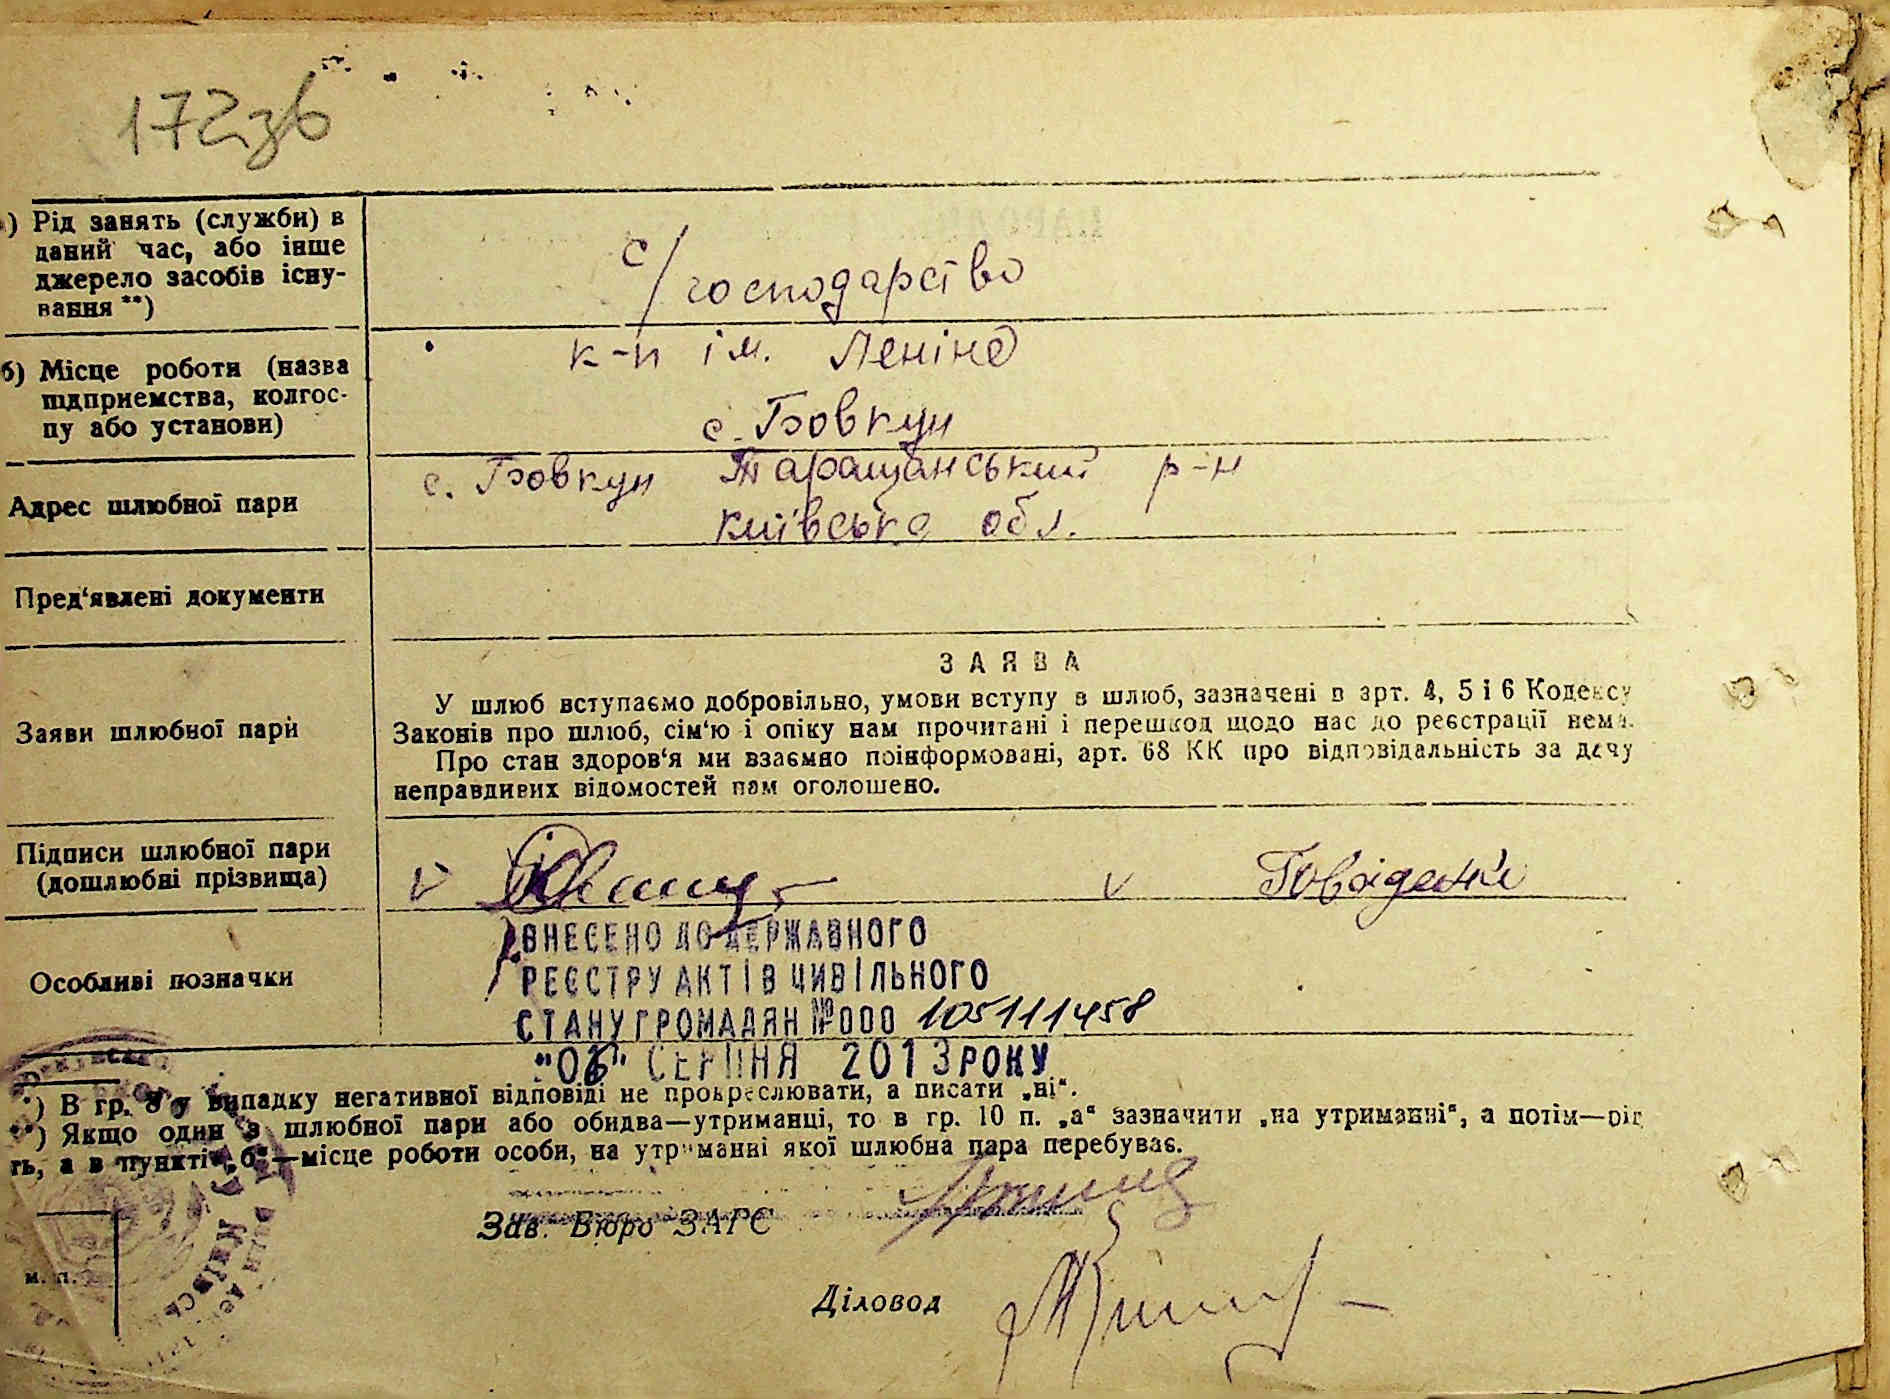 172зв
) Рід занять (служби) в
даний час, або інше
джерело засобів існу-
вання **)
с/господарство
б) Місце роботи (назва
підприємства, колгос-
пу або установи)
к-п ім. Леніна
с. Бовкун
Адрес шлюбної пари
с. Бовкун Таращанський р-н
Київська обл.
Пред‘явлені документи
ЗАЯВА
Заяви шлюбної пари
У шлюб вступаємо добровільно, умови вступу в шлюб, зазначені в арт. 4, 5 і 6 Кодексу
Законів про шлюб, сім‘ю і опіку нам прочитані і перешкод щодо нас до реєстрації нема.
Про стан здоров‘я ми взаємно поінформовані, арт. 68 КК про відповідальність за дачу
неправдивих відомостей нам оголошено.
Підписи шлюбної пари
(дошлюбні прізвища)
V V
Особливі позначки
ВНЕСЕНО ДО ДЕРЖАВНОГО
РЕЄСТРУ АКТІВ ЦИВІЛЬНОГО
СТАНУ ГРОМАДЯН №000 105111458
"06" СЕРПНЯ 2013 РОКУ
*) В гр. 8 у випадку негативної відповіді не прокреслювати, а писати „ні“.
**) Якщо один з шлюбної пари або обидва—утриманці, то в гр. 10 п. „а“ зазначити „на утриманні“, а потім—рід
ть, а в пункті „б“—місце роботи особи, на утриманні якої шлюбна пара перебуває.
Зав. Бюро ЗАГС
Діловод
м. п.